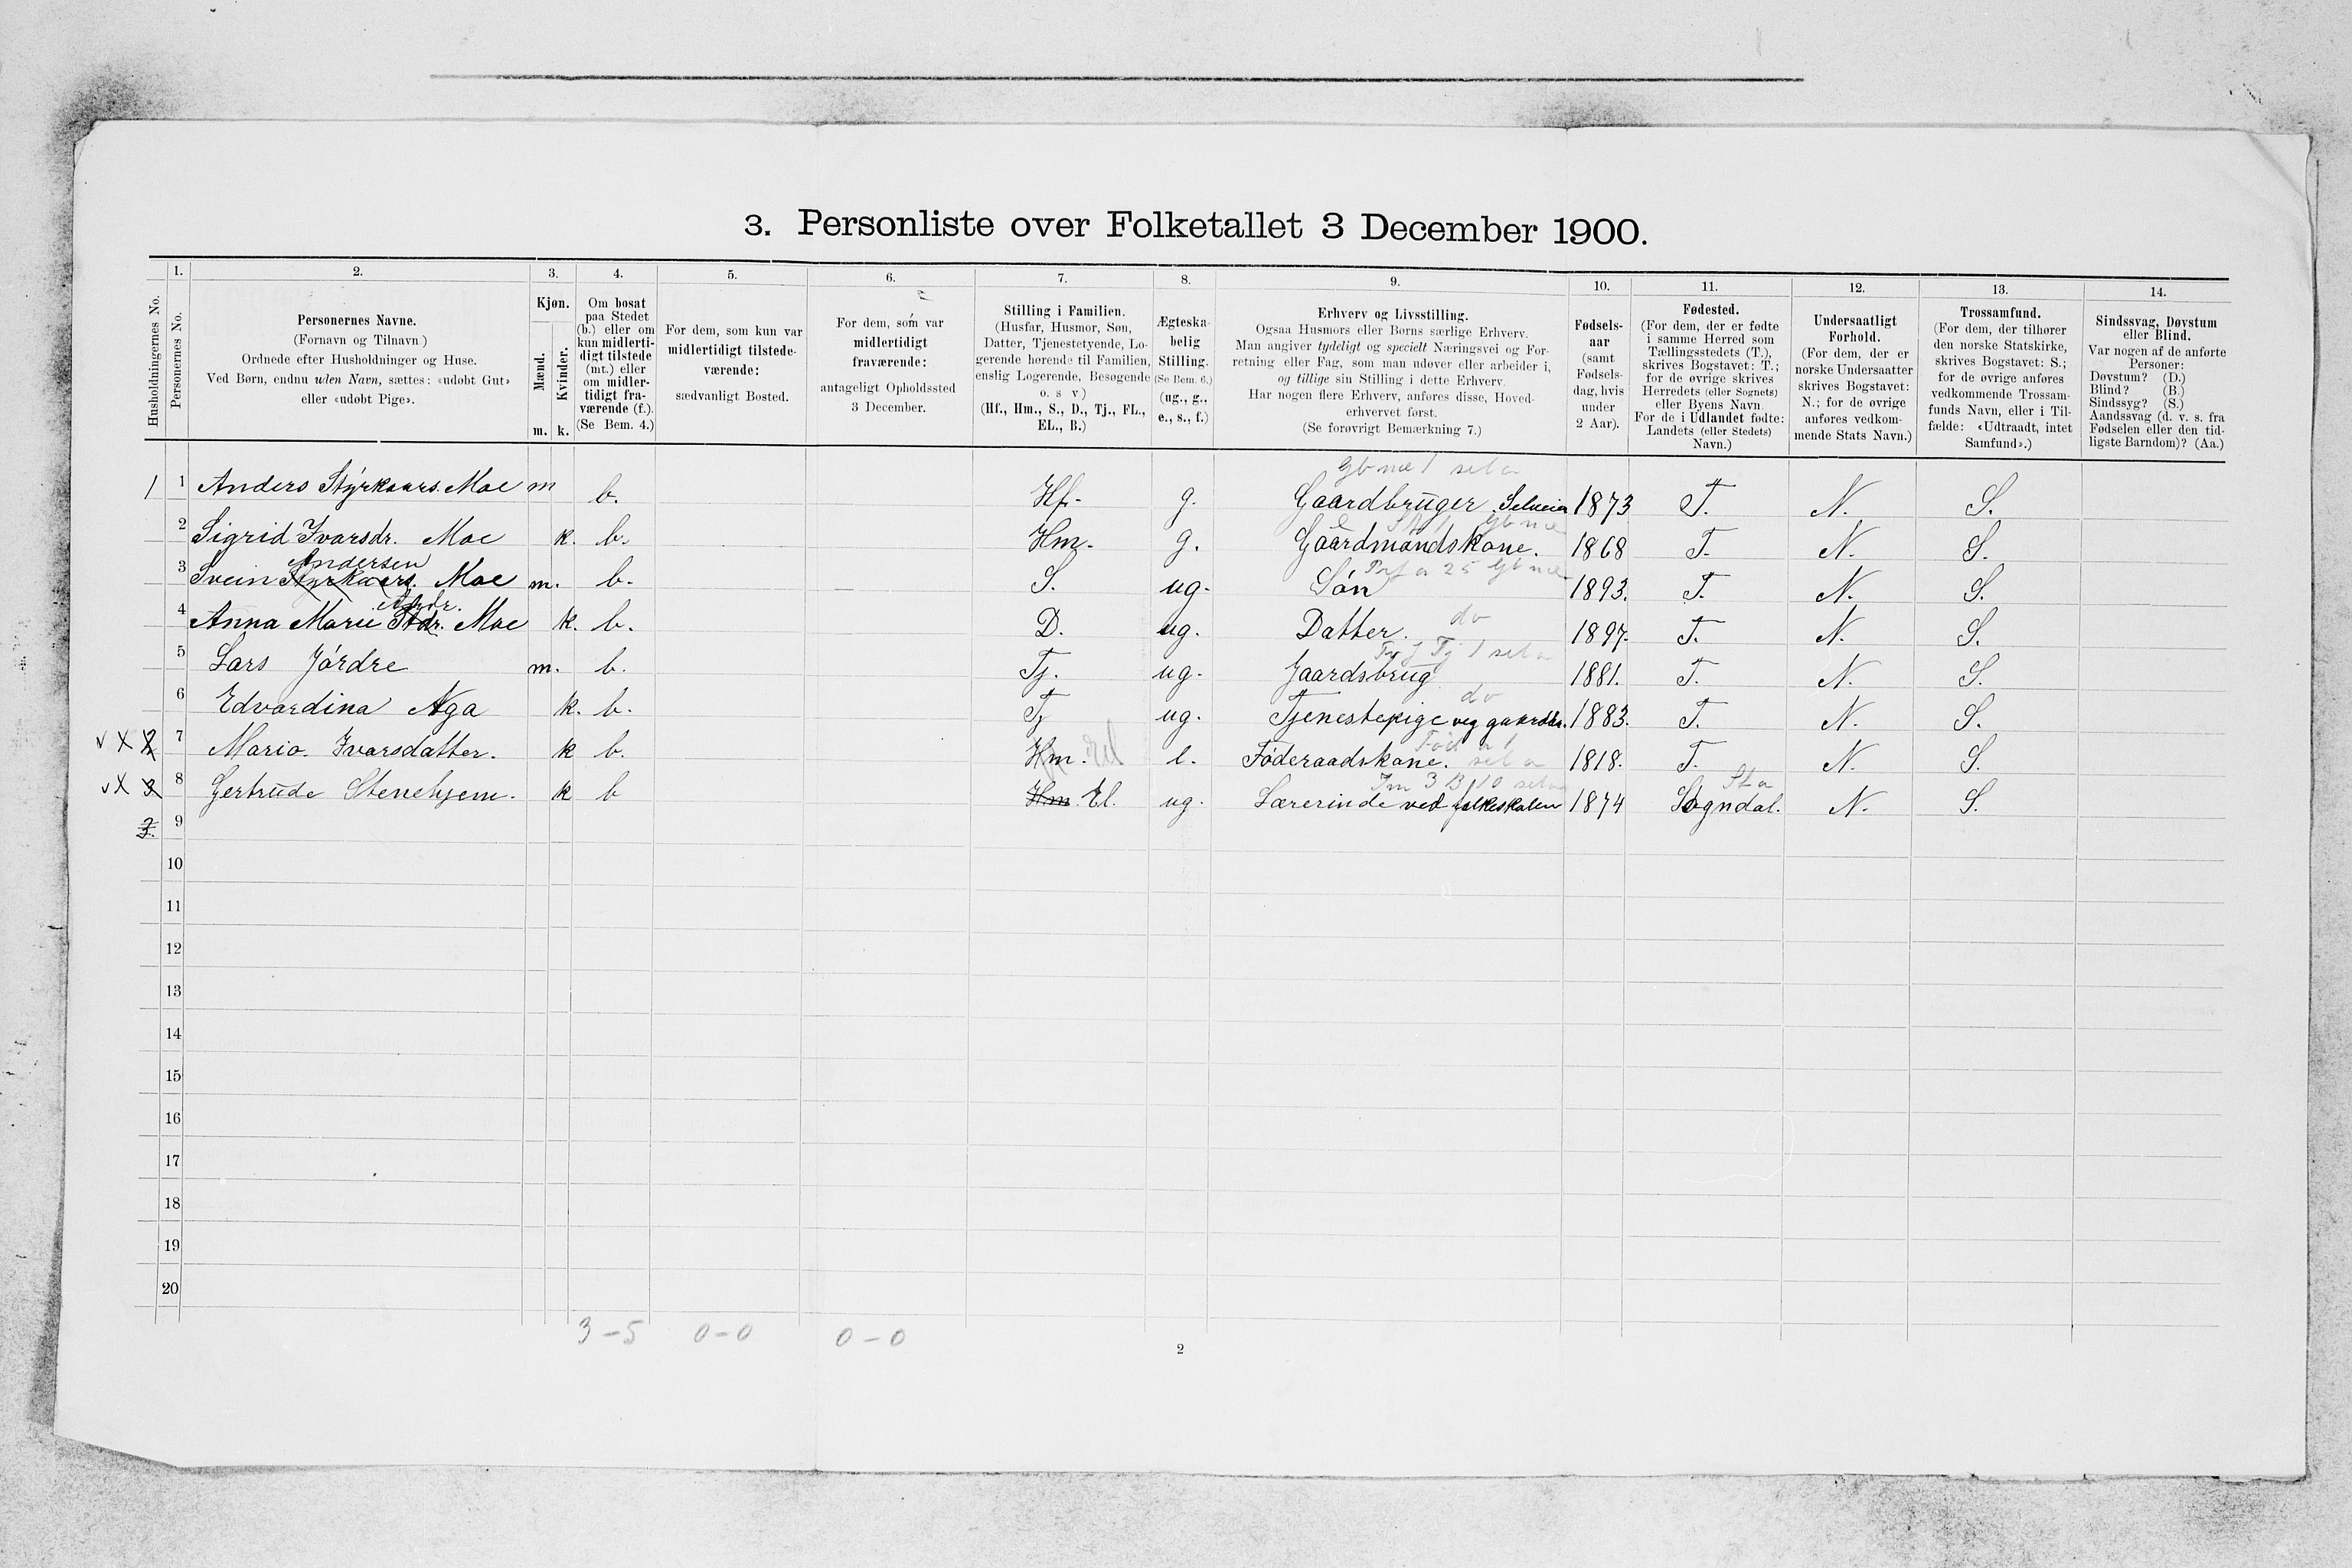 3. Personliste over Folketallet 3 December 1900.
Husholdningernes No.
1. Personernes No.
2.
Personernes Navne.
(Fornavn og Tilnavn)
Ordnede efter Husholdninger og Huse.
Ved Børn, endnu uden Navn, sættes: «udøbt Gut»
eller «udøbt Pige».
3.
Kjøn.
Mænd.
Kvinder.
m. k.
4.
Om bosat
paa Stedet
(b.) eller om
kun midlerti-
digt tilstede
(mt.) eller
om midler-
tidigt fra-
værende (f.).
(Se Bem. 4.)
5.
For dem, som kun var
midlertidigt tilstede-
værende:
sædvanligt Bosted.
6.
For dem, som var
midlertidigt
fraværende:
antageligt Opholdssted
3 December.
7.
Stilling i Familien.
(Husfar, Husmor, Søn,
Datter, Tjenestetyende, Lo-
gerende hørende til Familien,
enslig Logerende, Besøgende
o. s v)
(Hf., Hm., S., D., Tj., FL.,
EL., B.)
8.
Ægteska-
belig
Stilling.
(Se Bem. 6.)
(ug., g.,
e., s., f.)
9.
Erhverv og Livsstilling.
Ogsaa Husmors eller Børns særlige Erhverv.
Man angiver tydeligt og specielt Næringsvei og For-
retning eller Fag, som man udøver eller arbeider i,
og tillige sin Stilling i dette Erhverv.
Har nogen flere Erhverv, anføres disse, Hoved-
erhvervet først.
(Se forøvrigt Bemærkning 7.)
10.
Fødsels-
aar
(samt
Fødsels-
dag, hvis
under
2 Aar).
11.
Fødested.
(For dem, der er fødte
i samme Herred som
Tællingsstedets (T.),
skrives Bogstavet: T.;
for de øvrige skrives
Herredets (eller Sognets)
eller Byens Navn.
For de i Udlandet fødte:
Landets (eller Stedets)
Navn.)
12.
Undersaatligt
Forhold.
(For dem, der er
norske Undersaatter
skrives Bogstavet:
N.; for de øvrige
anføres vedkom-
mende Stats Navn.)
13.
Trossamfund.
(For dem, der tilhører
den norske Statskirke,
skrives Bogstavet: S.;
for de øvrige anføres
vedkommende Trossam-
funds Navn, eller i Til-
fælde: «Udtraadt, intet
Samfund».)
14.
Sindssvag, Døvstum
eller Blind.
Var nogen af de anførte
Personer:
Døvstum? (D.)
Blind? (B.)
Sindssyg? (S.)
Aandssvag (d. v. s. fra
Fødselen eller den tid-
ligste Barndom)? (Aa.)
1 1 Anders Styrkaars. Moe m b. Hf. g. Gaardbruger Selveier 1873 T. N. S.
2 Sigrid Ivarsdr. Moe k. b. Hm. g. Gaardmandskone. 1868 T. N. S.
Andersen
3 Svein Styrkaars. Moe m. b. S. ug. Søn 1893. T. N. S.
Andr.
4 Anna Marie Stdr. Moe k. b. D. ug. Datter. do 1897. T. N. S.
5 Lars Jördre m. b. Tj. ug. Jaardsbrug 1881. T. N. S.
6 Edvardina Aga k. b. Tj ug. Tjenestepige do 1883. T. N. S.
7 Maria Ivarsdatter. k b. Hm. e. Föderaadskone. 1818. T. N. S.
8 Gertrude Stenehjem. k b Hm. El. ug. Lærerinde ved folkeskolen 1874 Sogndal. N. S.
9
10
11
12
13
14
15
16
17
18
19
20
3-5 0-0 0-0
2